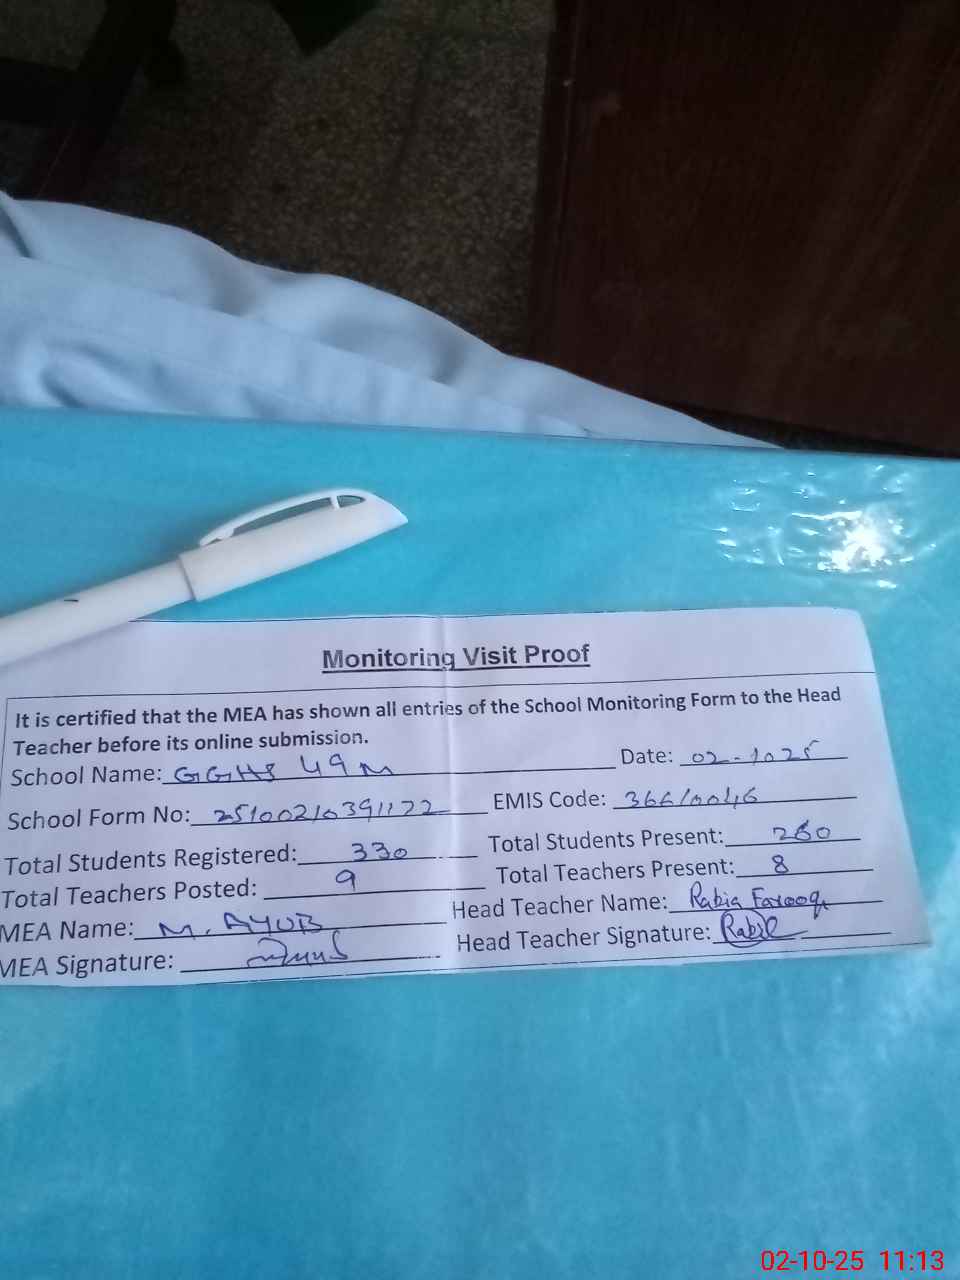 Monitoring Visit Proof
It is certified that the MEA has shown all entries of the School Monitoring Form to the Head
Teacher before its online submission.
School Name: GGHS 49M Date: 02-1025
School Form No: 25100210391122 EMIS Code: 36610046
Total Students Registered: 330 Total Students Present: 260
Total Teachers Posted: 9 Total Teachers Present: 8
MEA Name: M. AYUB Head Teacher Name: Rabia Farooq
MEA Signature: Head Teacher Signature:
02-10-25 11:13